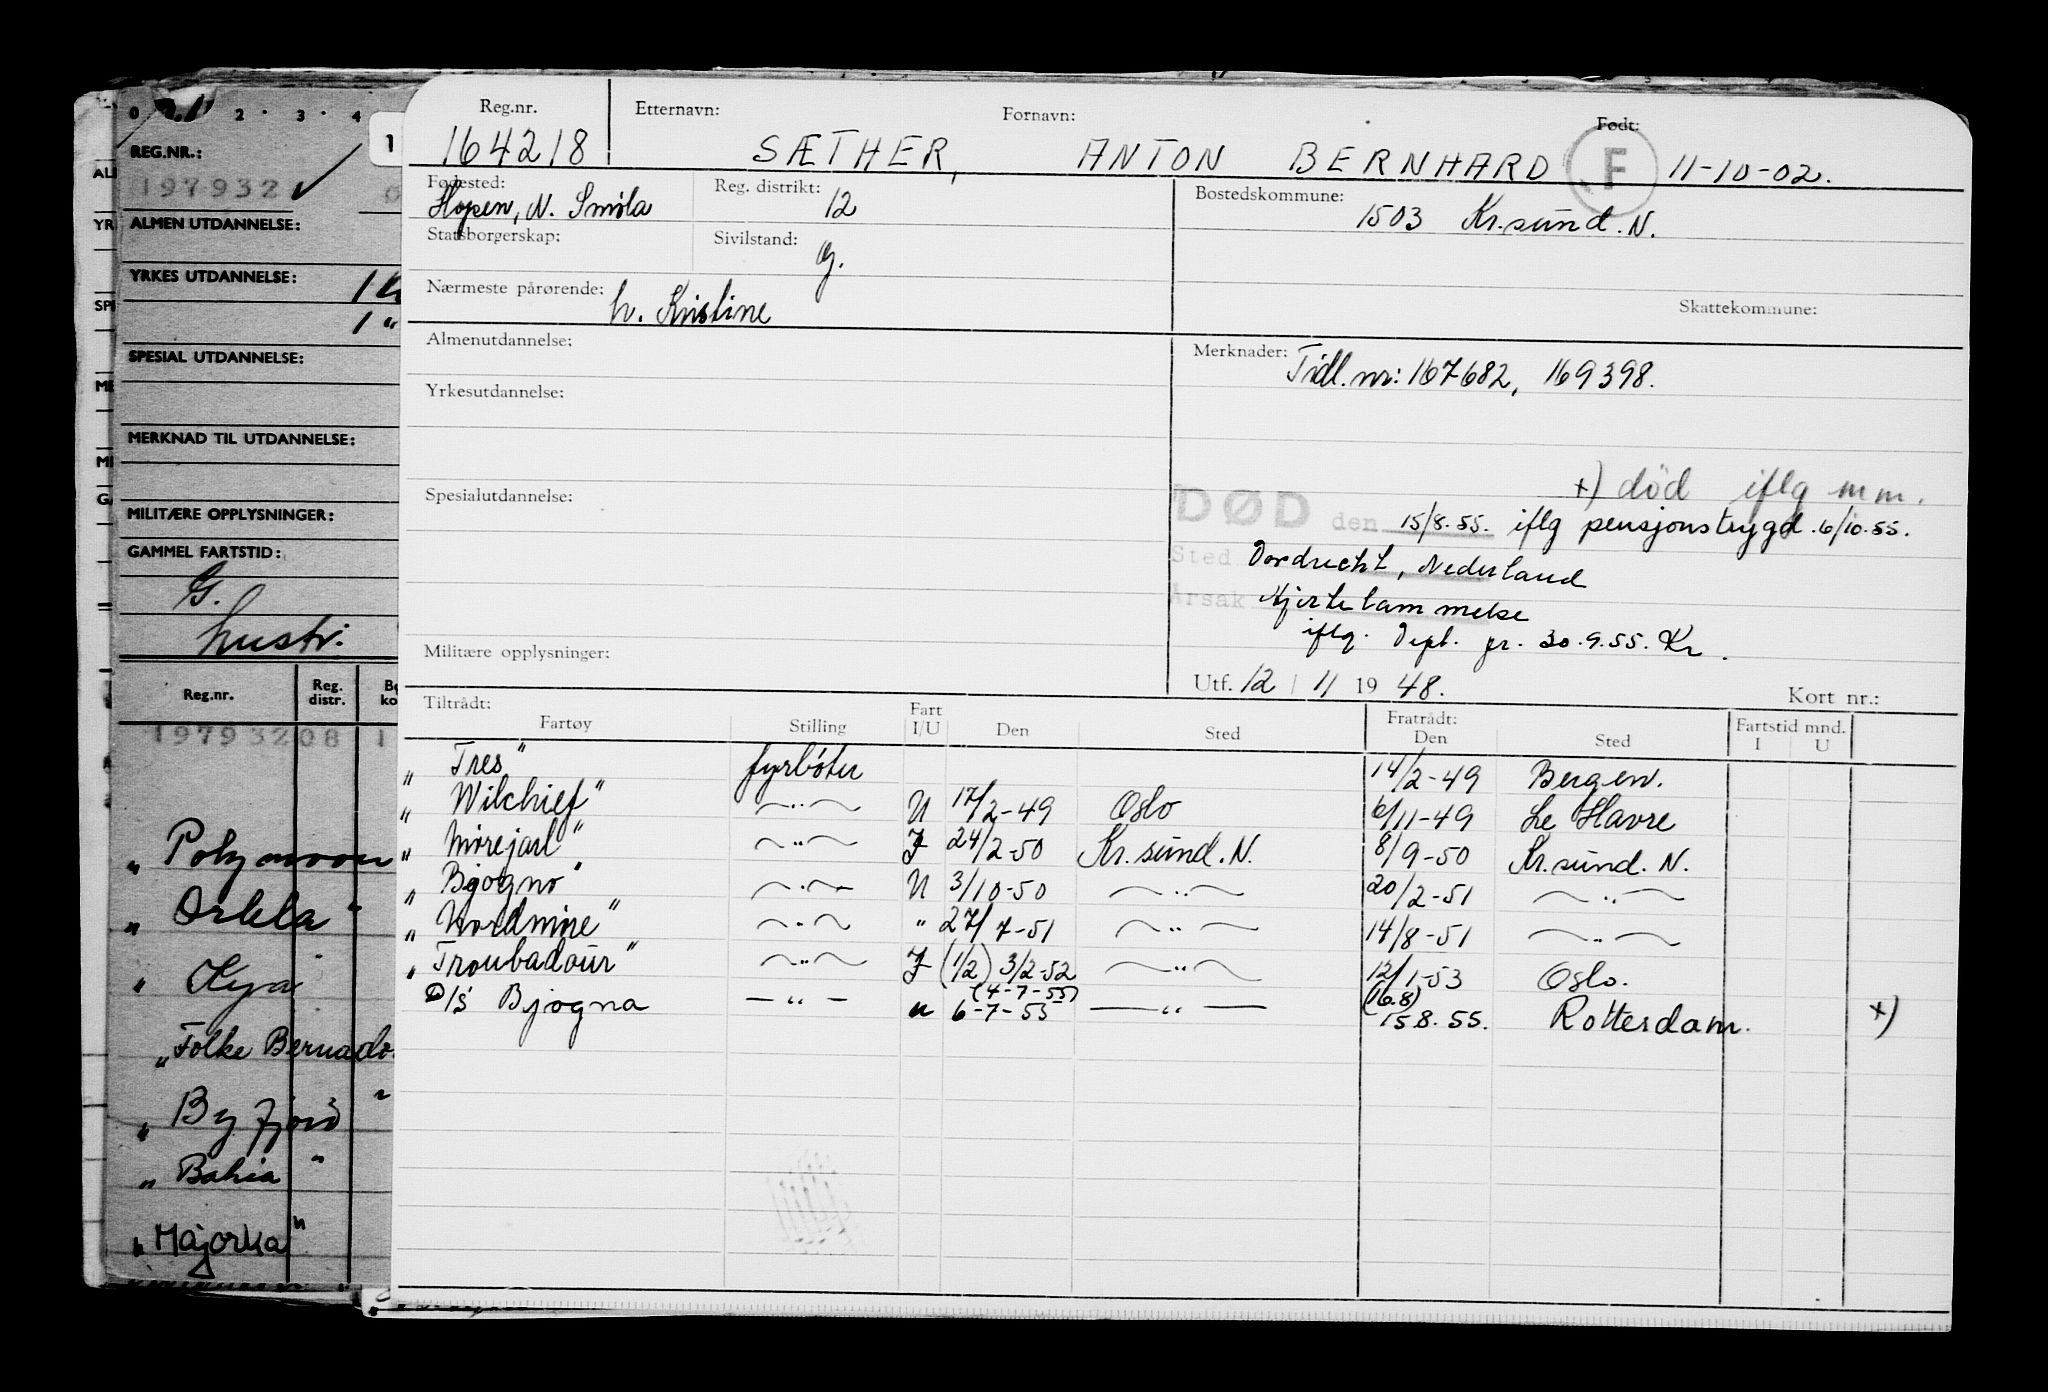 0 1 2 · 3 · 4
REG.NR.:
197932
ALMEN UTDANNELSE:
YRKES UTDANNELSE:
SPESIAL UTDANNELSE:
MERKNAD TIL UTDANNELSE:
MILITÆRE OPPLYSNINGER:
GAMMEL FARTSTID:
G.
hustr.
Reg.nr. Reg. distr.
19793208 1
"Polymoon
"Orkla"
"Kya"
"Folke Bernado
"Byfjord"
"Bahia"
"Majorka"
1
Reg.nr. Etternavn: Fornavn: Født:
164218 SÆTHER, ANTON BERNHARD F 11-10-02.
Fødested: Reg. distrikt: Bostedskommune:
Hopen, N. Smøla 12 1503 Kr.sund. N.
Statsborgerskap: Sivilstand:
g.
Nærmeste pårørende: h. Kristine
Skattekommune:
Almenutdannelse:
Merknader: Tidl. nr: 167682, 169398.
Yrkesutdannelse:
Spesialutdannelse:
x) död iflg mm.
DØD den 15/8.55. iflg pensjonstrygd. 6/10.55.
Sted Dordrecht, Nederland
Årsak Hjertelammelse
iflg. Dept. gr. 30.9.55. Kr.
Militære opplysninger:
Utf. 12 / 11 19 48. Kort nr.:
Tiltrådt: Fratrådt: Fartstid mnd.
Fartøy Stilling Fart I/U Den Sted Den Sted I U
"Tres" fyrbøter 14/2-49 Bergen.
"Wilchief" —"— U 17/2-49 Oslo 6/11-49 Le Havre
"Mørejarl" —"— I 24/2-50 Kr.sund. N. 8/9-50 Kr.sund. N.
"Bjøgno" —"— U 3/10-50 —"— 20/2-51 —"—
"Nordmøre" —"— " 27/7-51 —"— 14/8-51 —"—
"Troubadour" —"— I (1/2) 3/2-52 —"— 12/1-53 Oslo.
(4-7-55) (16.8)
D/s Bjøgna —"— u 6-7-55 —"— 15.8.55. Rotterdam. x)